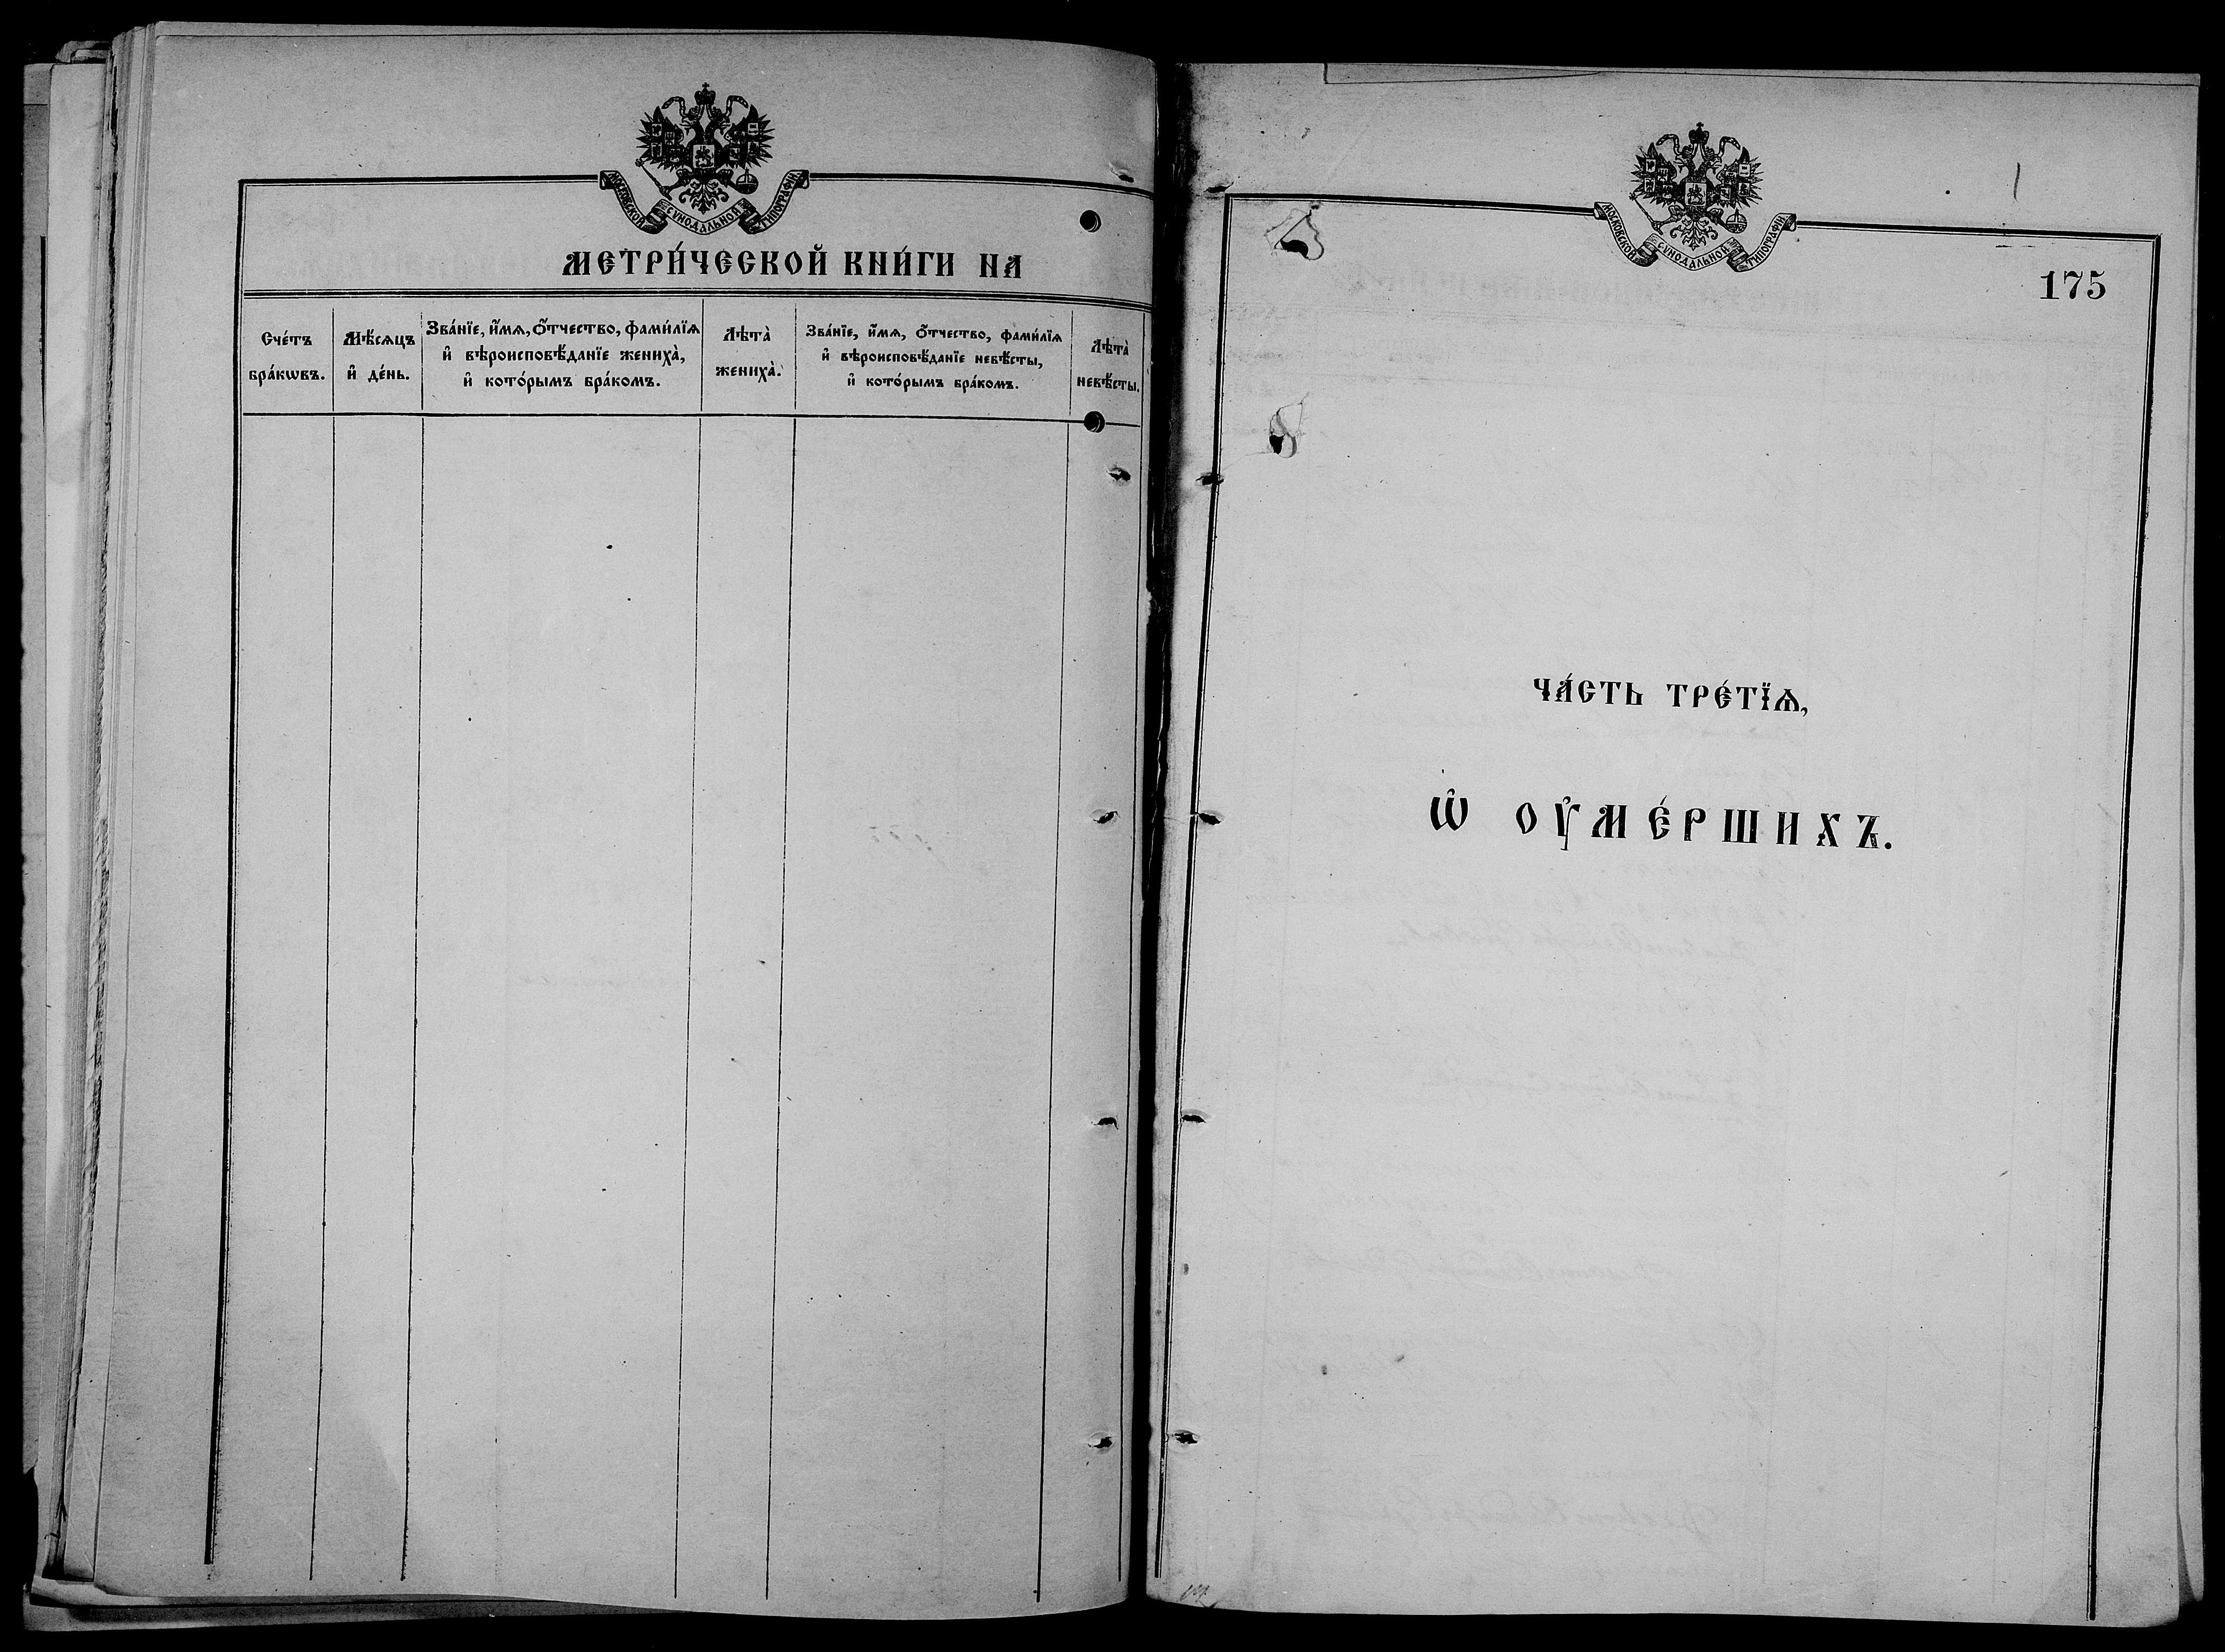 МОСКОВСКОЙ СУНОДАЛЬНОЙ ТИПОГРАФІИ
МЕТРИ́ЧЕСКОЙ КНИ́ГИ НА
Сче́тъ бра́кѡвъ.
Мѣ́сѧцъ и҆ де́нь.
Зва́нїе, и҆́мѧ, ѻ҆́тчество, фами́лїѧ
и҆ вѣроисповѣ́данїе жениха̀,
и҆ кото́рымъ бра́комъ.
Лѣта̀ жениха̀.
Зва́нїе, и҆́мѧ, ѻ҆́тчество, фами́лїѧ
и҆ вѣроисповѣ́данїе невѣ́сты,
и҆ кото́рымъ бра́комъ.
Лѣта̀ невѣ́сты.
МОСКОВСКОЙ СУНОДАЛЬНОЙ ТИПОГРАФІИ
175
ЧА́СТЬ ТРЕ́ТЇѦ,
Ѡ҆ ОУ҆МЕ́РШИХЪ.